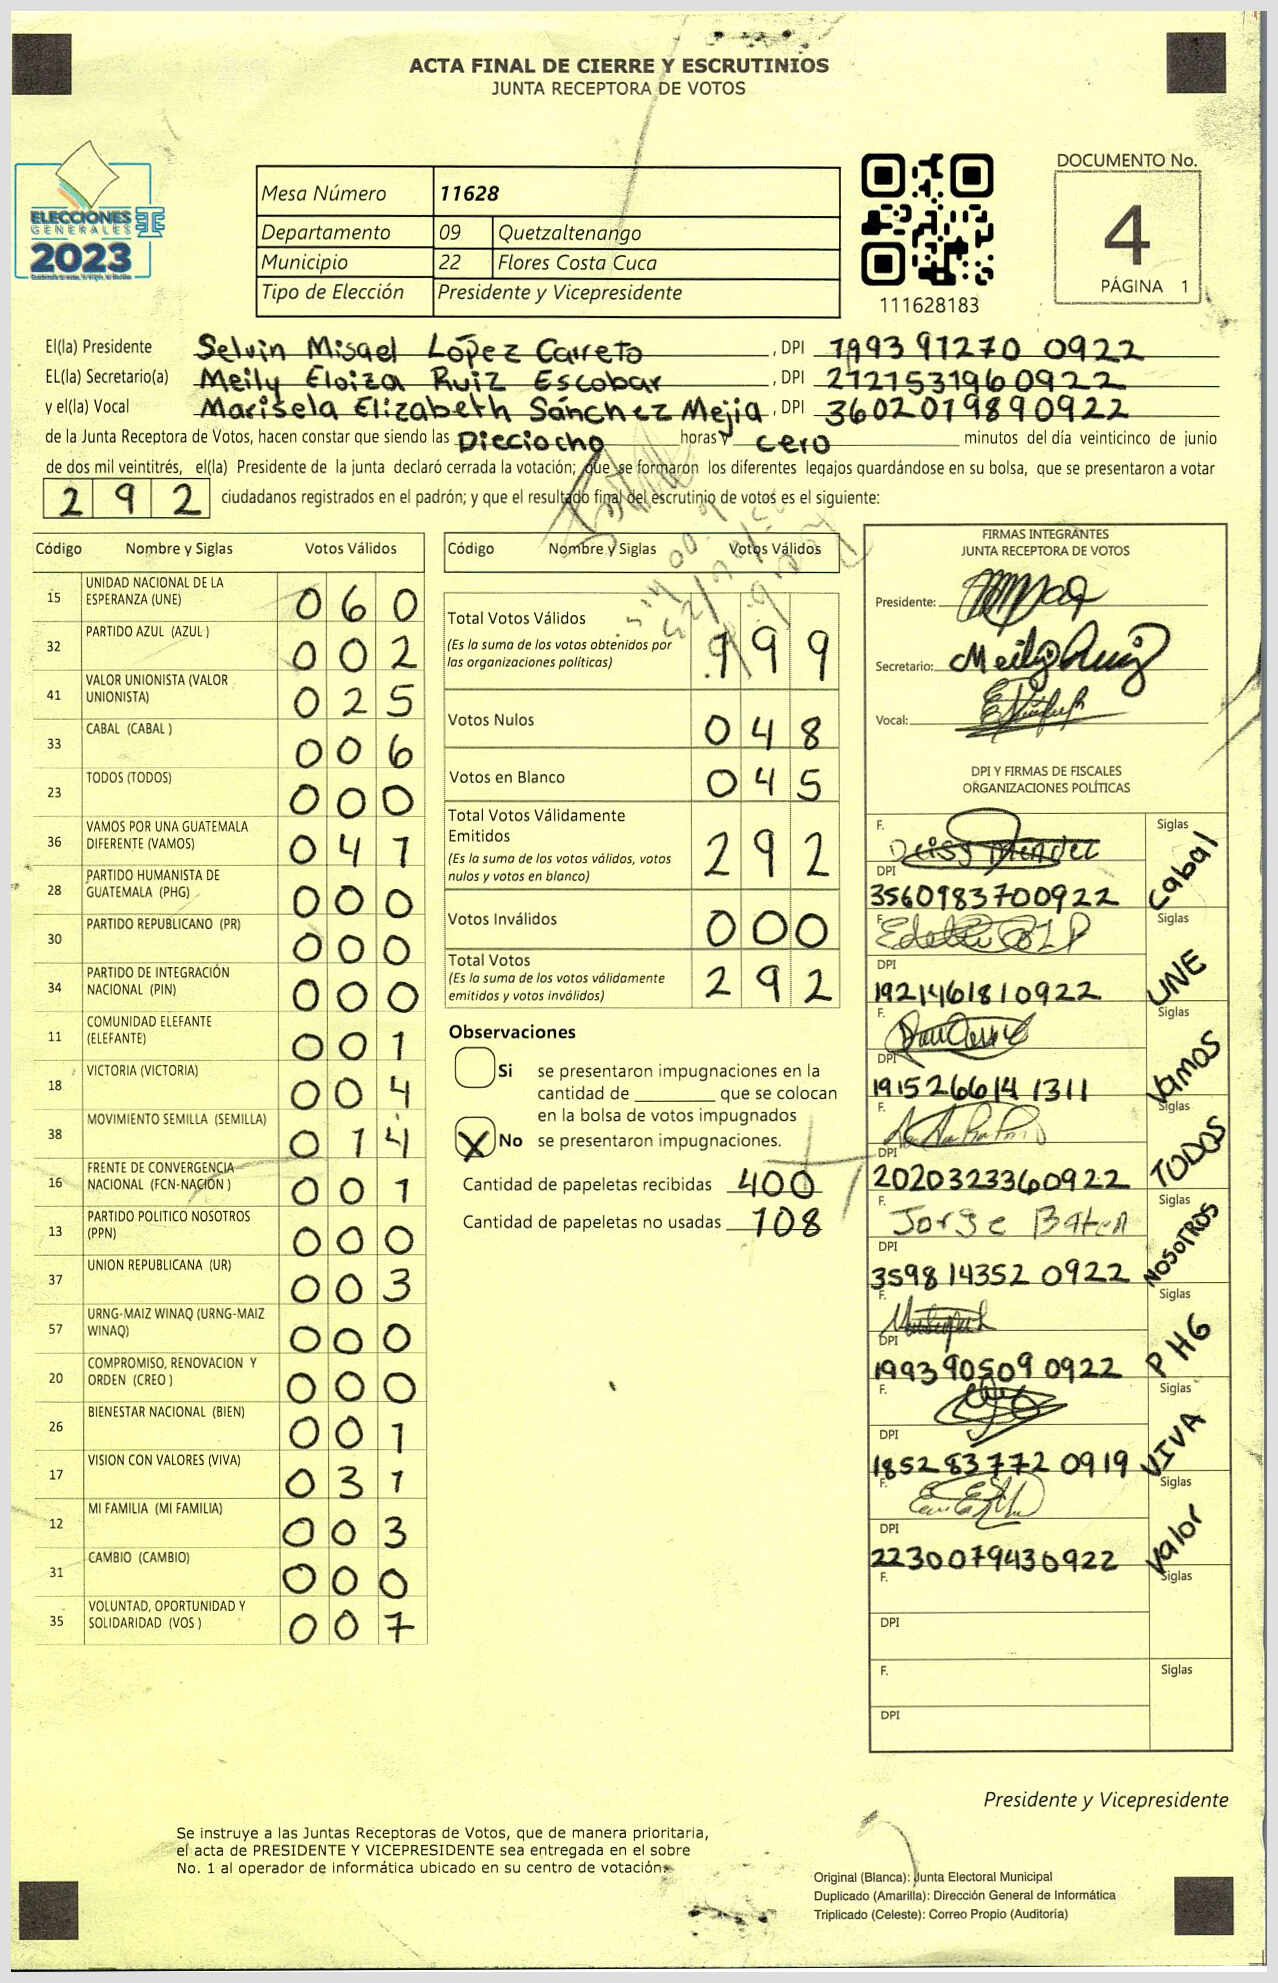 ACTA FINAL DE CIERRE Y ESCRUTINIOS
JUNTA RECEPTORA DE VOTOS
ELECCIONES
GENERALES
2023
Mesa Número 11628
Departamento 09 Quetzaltenango
Municipio 22 Flores Costa Cuca
Tipo de Elección Presidente y Vicepresidente
111628183
DOCUMENTO No.
4
PÁGINA 1
El(la) Presidente Selvin Misael López Carreto, DPI 199391270 0922
EL(la) Secretario(a) Meily Eloiza Ruiz Escobar, DPI 2121531960922
y el(la) Vocal Marisela Elizabeth Sánchez Mejia, DPI 3602019890922
de la Junta Receptora de Votos, hacen constar que siendo las Dieciocho horas y cero minutos del día veinticinco de junio
de dos mil veintitrés, el(la) Presidente de la junta declaró cerrada la votación; que se formaron los diferentes legajos guardándose en su bolsa, que se presentaron a votar
292 ciudadanos registrados en el padrón; y que el resultado final del escrutinio de votos es el siguiente:
Código Nombre y Siglas Votos Válidos
15 UNIDAD NACIONAL DE LA ESPERANZA (UNE) 060
32 PARTIDO AZUL (AZUL ) 002
41 VALOR UNIONISTA (VALOR UNIONISTA) 025
33 CABAL (CABAL ) 006
23 TODOS (TODOS) 000
36 VAMOS POR UNA GUATEMALA DIFERENTE (VAMOS) 041
28 PARTIDO HUMANISTA DE GUATEMALA (PHG) 000
30 PARTIDO REPUBLICANO (PR) 000
34 PARTIDO DE INTEGRACIÓN NACIONAL (PIN) 000
11 COMUNIDAD ELEFANTE (ELEFANTE) 001
18 VICTORIA (VICTORIA) 004
38 MOVIMIENTO SEMILLA (SEMILLA) 014
16 FRENTE DE CONVERGENCIA NACIONAL (FCN-NACIÓN ) 001
13 PARTIDO POLITICO NOSOTROS (PPN) 000
37 UNION REPUBLICANA (UR) 003
57 URNG-MAIZ WINAQ (URNG-MAIZ WINAQ) 000
20 COMPROMISO, RENOVACION Y ORDEN (CREO ) 000
26 BIENESTAR NACIONAL (BIEN) 001
17 VISION CON VALORES (VIVA) 031
12 MI FAMILIA (MI FAMILIA) 003
31 CAMBIO (CAMBIO) 000
35 VOLUNTAD, OPORTUNIDAD Y SOLIDARIDAD (VOS ) 007
Código Nombre y Siglas Votos Válidos
Total Votos Válidos 199
(Es la suma de los votos obtenidos por
las organizaciones políticas)
Votos Nulos 048
Votos en Blanco 045
Total Votos Válidamente
Emitidos 292
(Es la suma de los votos válidos, votos
nulos y votos en blanco)
Votos Inválidos 000
Total Votos 292
(Es la suma de los votos válidamente
emitidos y votos inválidos)
Observaciones
Si se presentaron impugnaciones en la
cantidad de ________ que se colocan
en la bolsa de votos impugnados
X No se presentaron impugnaciones.
Cantidad de papeletas recibidas 400
Cantidad de papeletas no usadas 108
FIRMAS INTEGRANTES
JUNTA RECEPTORA DE VOTOS
Presidente:
Secretario: Meily Ruiz
Vocal:
DPI Y FIRMAS DE FISCALES
ORGANIZACIONES POLÍTICAS
F. Siglas Cabal
DPI 3560983700922
F. Siglas UNE
DPI 1921461810922
F. Siglas Vamos
DPI 191526614 1311
F. Siglas TODOS
DPI 2020323360922
F. Jorge Siglas NOSOTROS
DPI 3598 14352 0922
F. Siglas PHG
DPI 199390509 0922
F. Siglas VIVA
DPI 1852 83772 0919
F. Siglas Valor
DPI 2230079430922
F. Siglas
DPI
F. Siglas
DPI
Presidente y Vicepresidente
Se instruye a las Juntas Receptoras de Votos, que de manera prioritaria,
el acta de PRESIDENTE Y VICEPRESIDENTE sea entregada en el sobre
No. 1 al operador de informática ubicado en su centro de votación.
Original (Blanca): Junta Electoral Municipal
Duplicado (Amarilla): Dirección General de Informática
Triplicado (Celeste): Correo Propio (Auditoría)